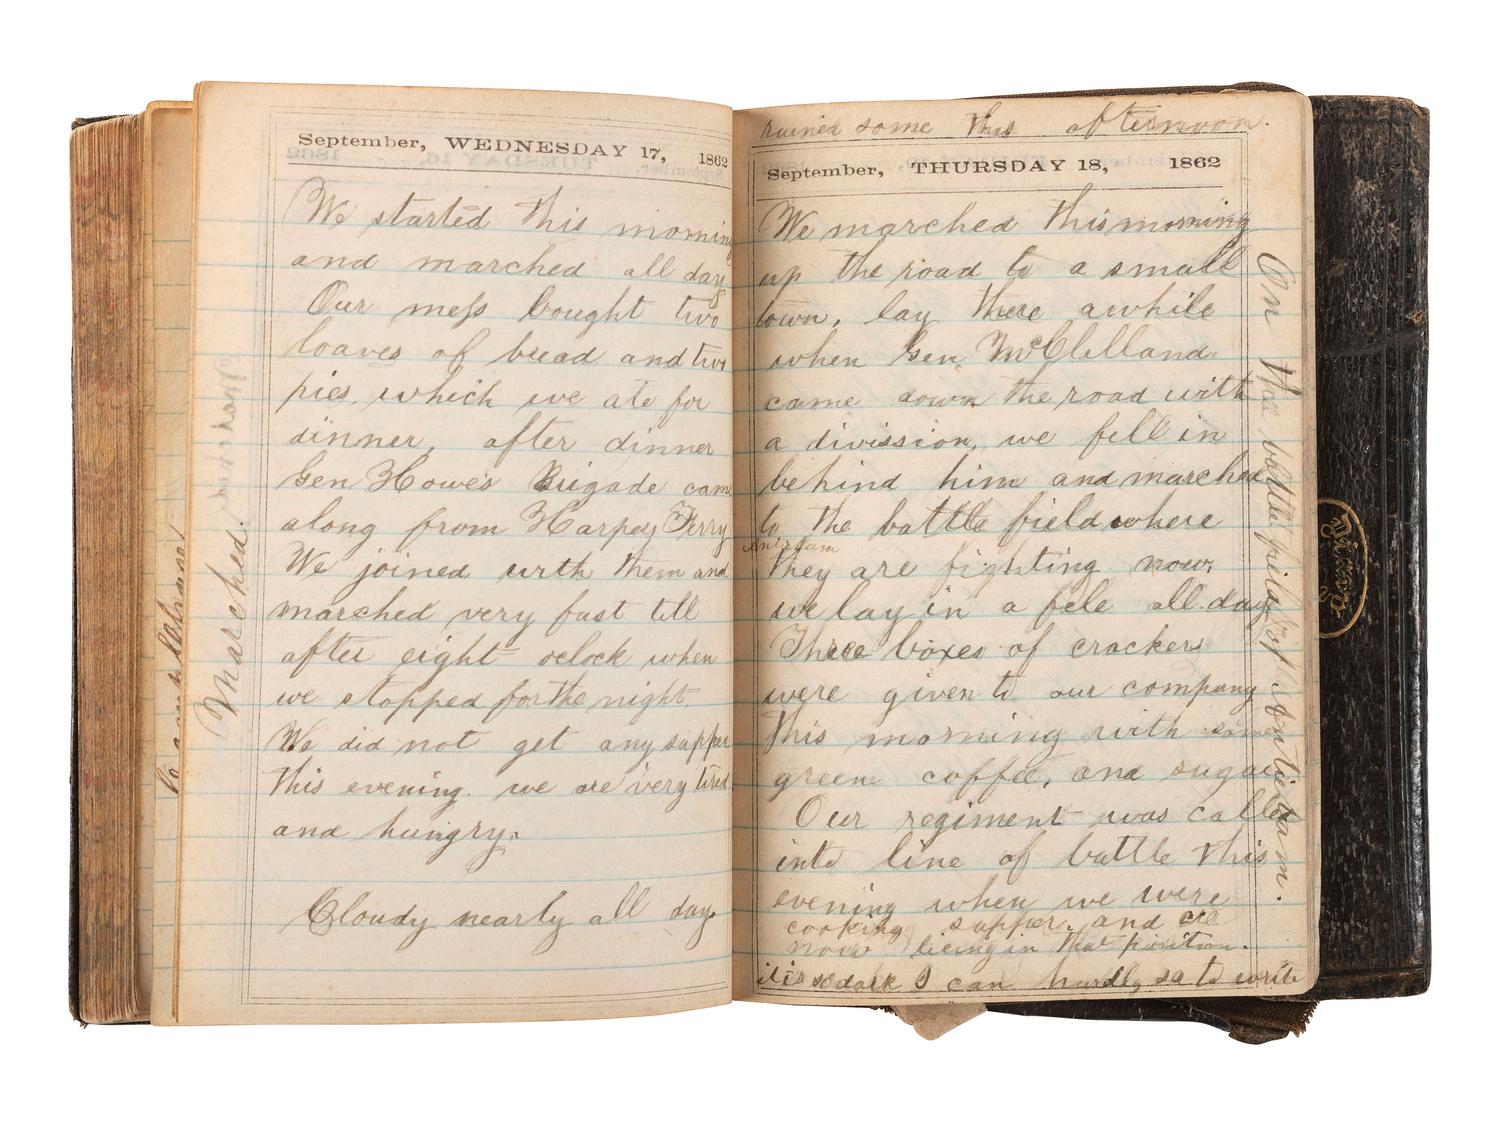 September, WEDNESDAY 17, 1862
We started this morning
and marched all day
Our mess bought two
loaves of bread and two
pies, which we ate for
dinner, after dinner
Gen Howe's Brigade came
along from Harpers Ferry
We joined with them and
marched very fast till
after eight oclock when
we stopped for the night.
We did not get any supper
this evening. we are very tired
and hungry.
Cloudy nearly all day.
Marched.
rained some this afternoon.
September, THURSDAY 18, 1862
We marched this morning
up the road to a small
town, lay there awhile
when Gen McClelland
came down the road with
a division, we fell in
behind him and marched
to the battle field where
Antietam
they are fighting now,
we lay in a fele all day
Three boxes of crackers
were given to our company
this morning with some
green coffee, and sugar
Our regiment was called
into line of battle this
evening when we were
cooking supper. and are
now lieing in that position.
it is so dark I can hardly sa to write
On the battle field of Antietam.
Diary